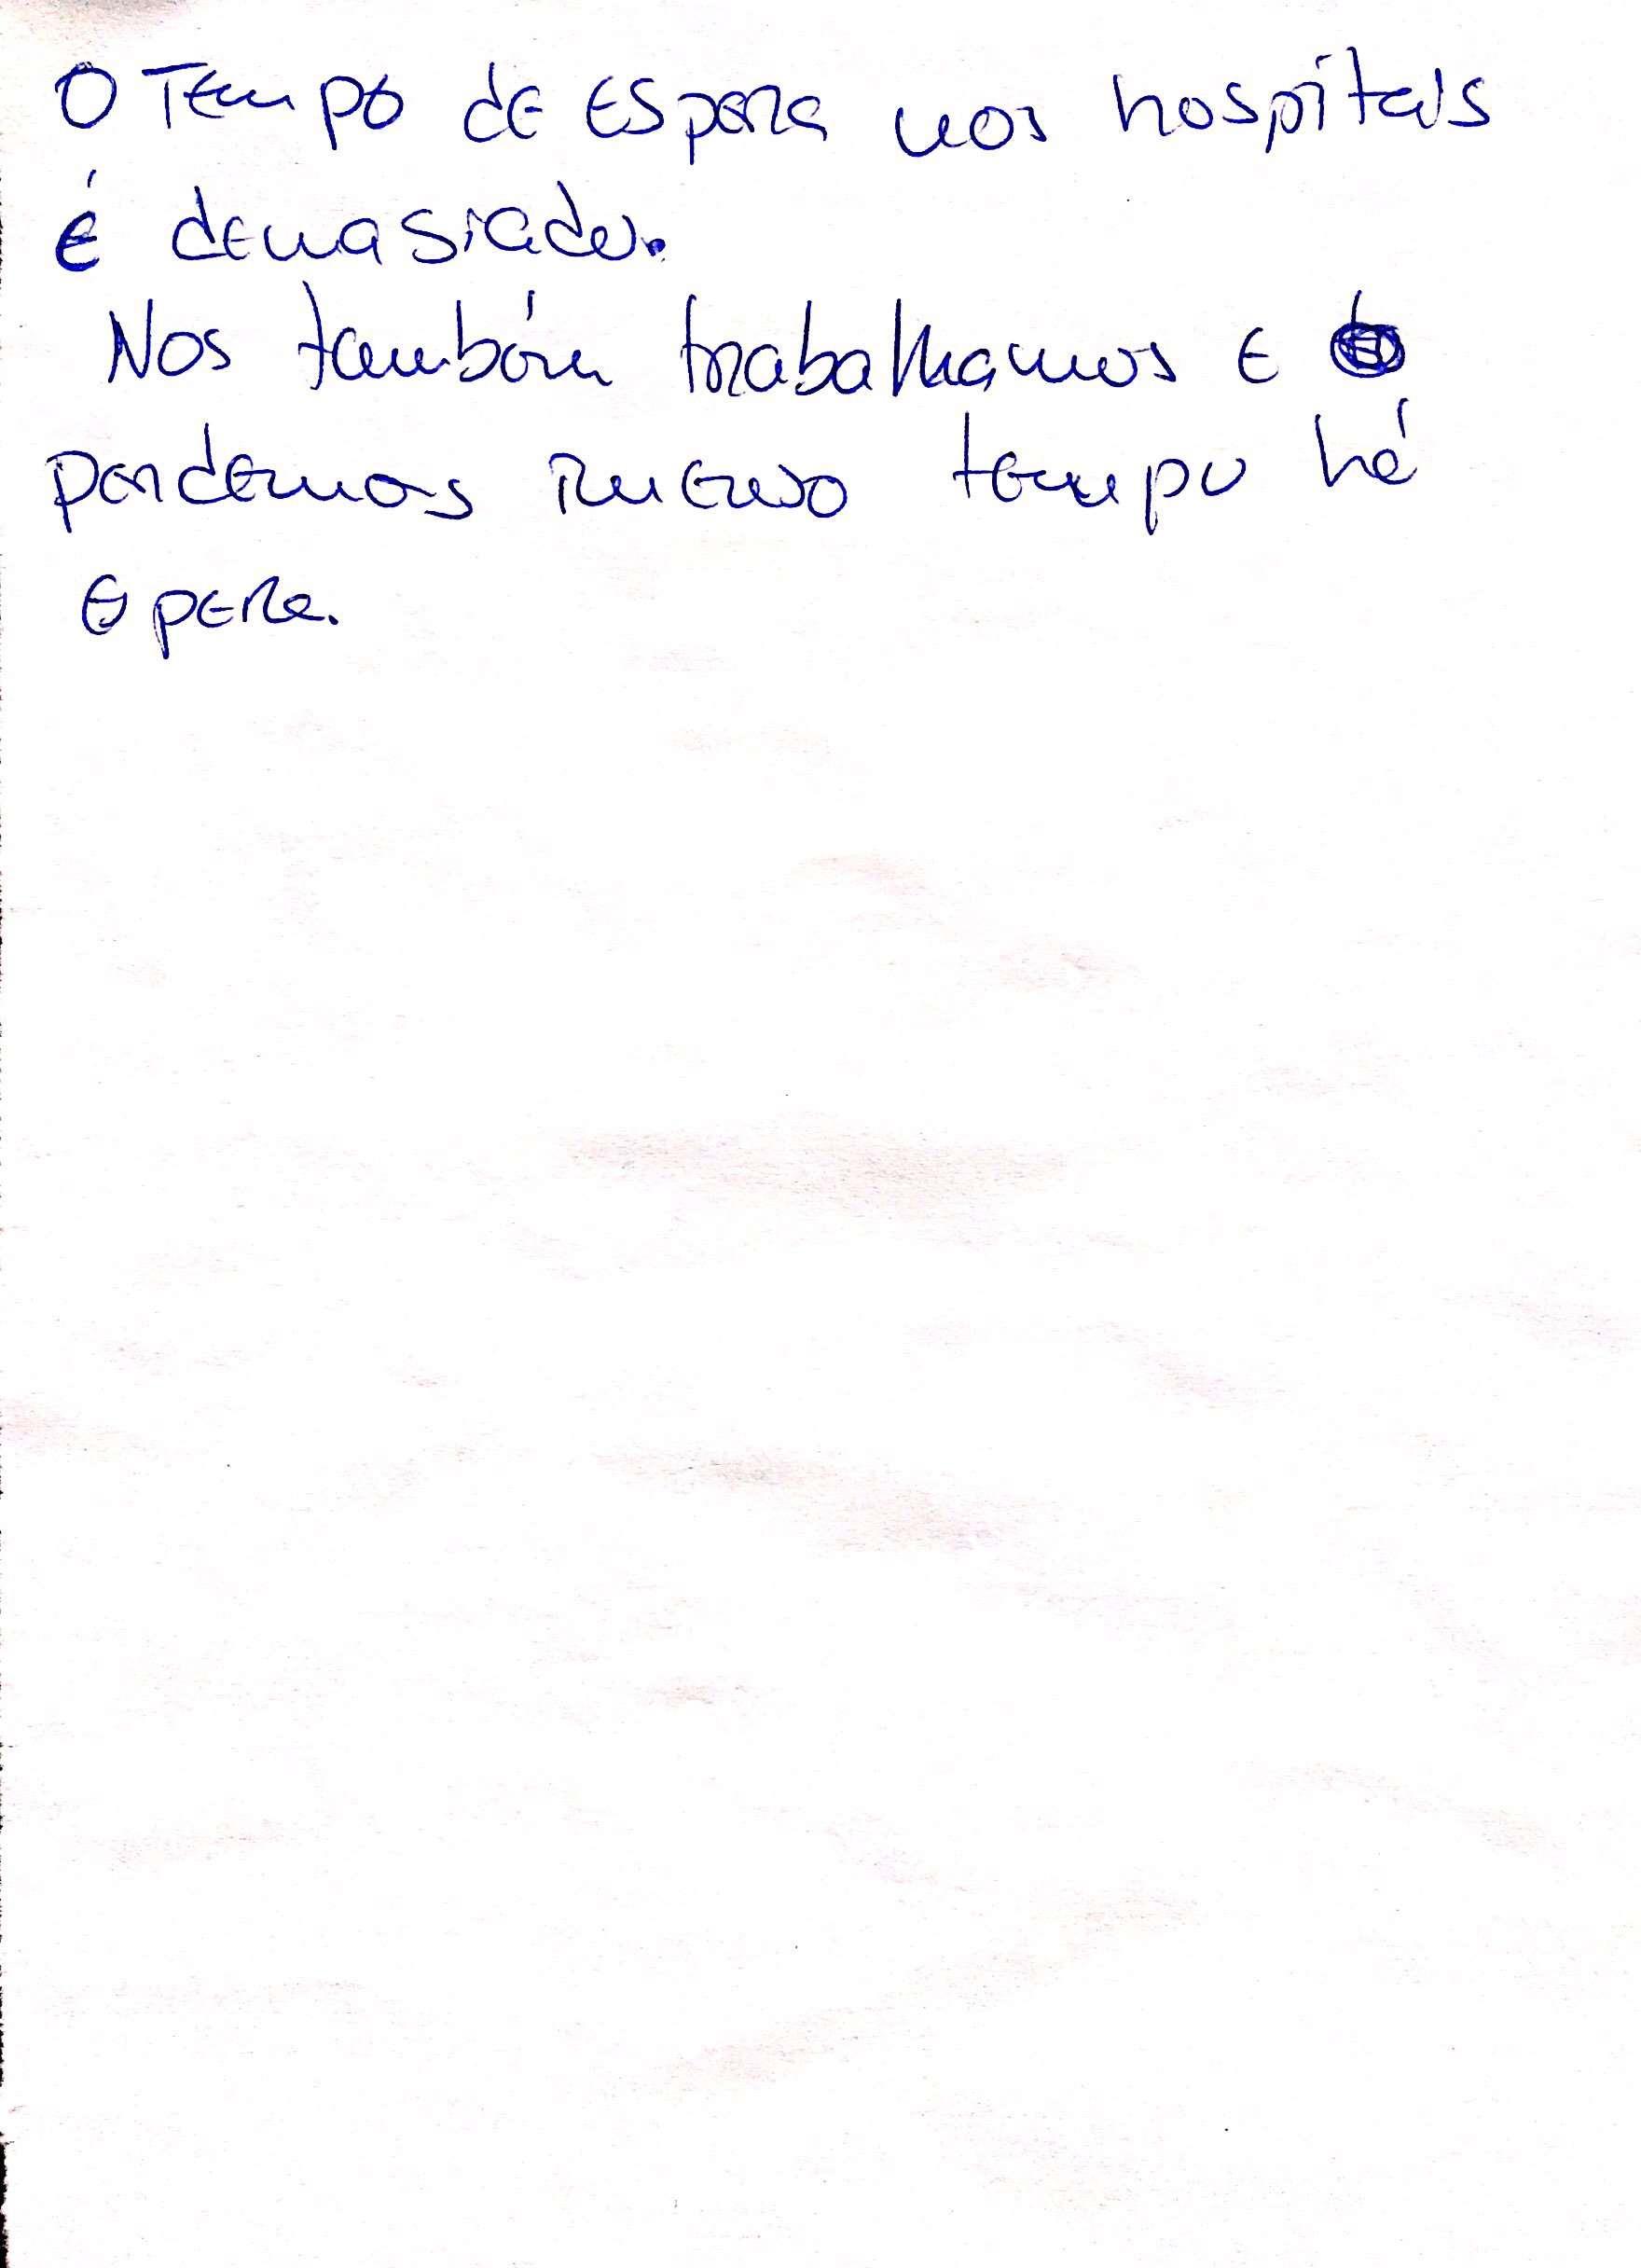 O Tempo de espera nos hospitais
é demasiado.
Nos também trabalhamos e
perdemos imenso tempo há
epera.